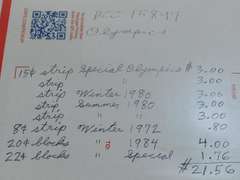 Olympics
15¢ strip Special Olympics $3.00
strip " " 3.00
strip Winter 1980 3.00
strip Summer 1980 3.00
strip " " 3.00
8¢ strip Winter 1972 .80
20¢ blocks " 1984 4.00
22¢ blocks " Special 1.76
$21.56